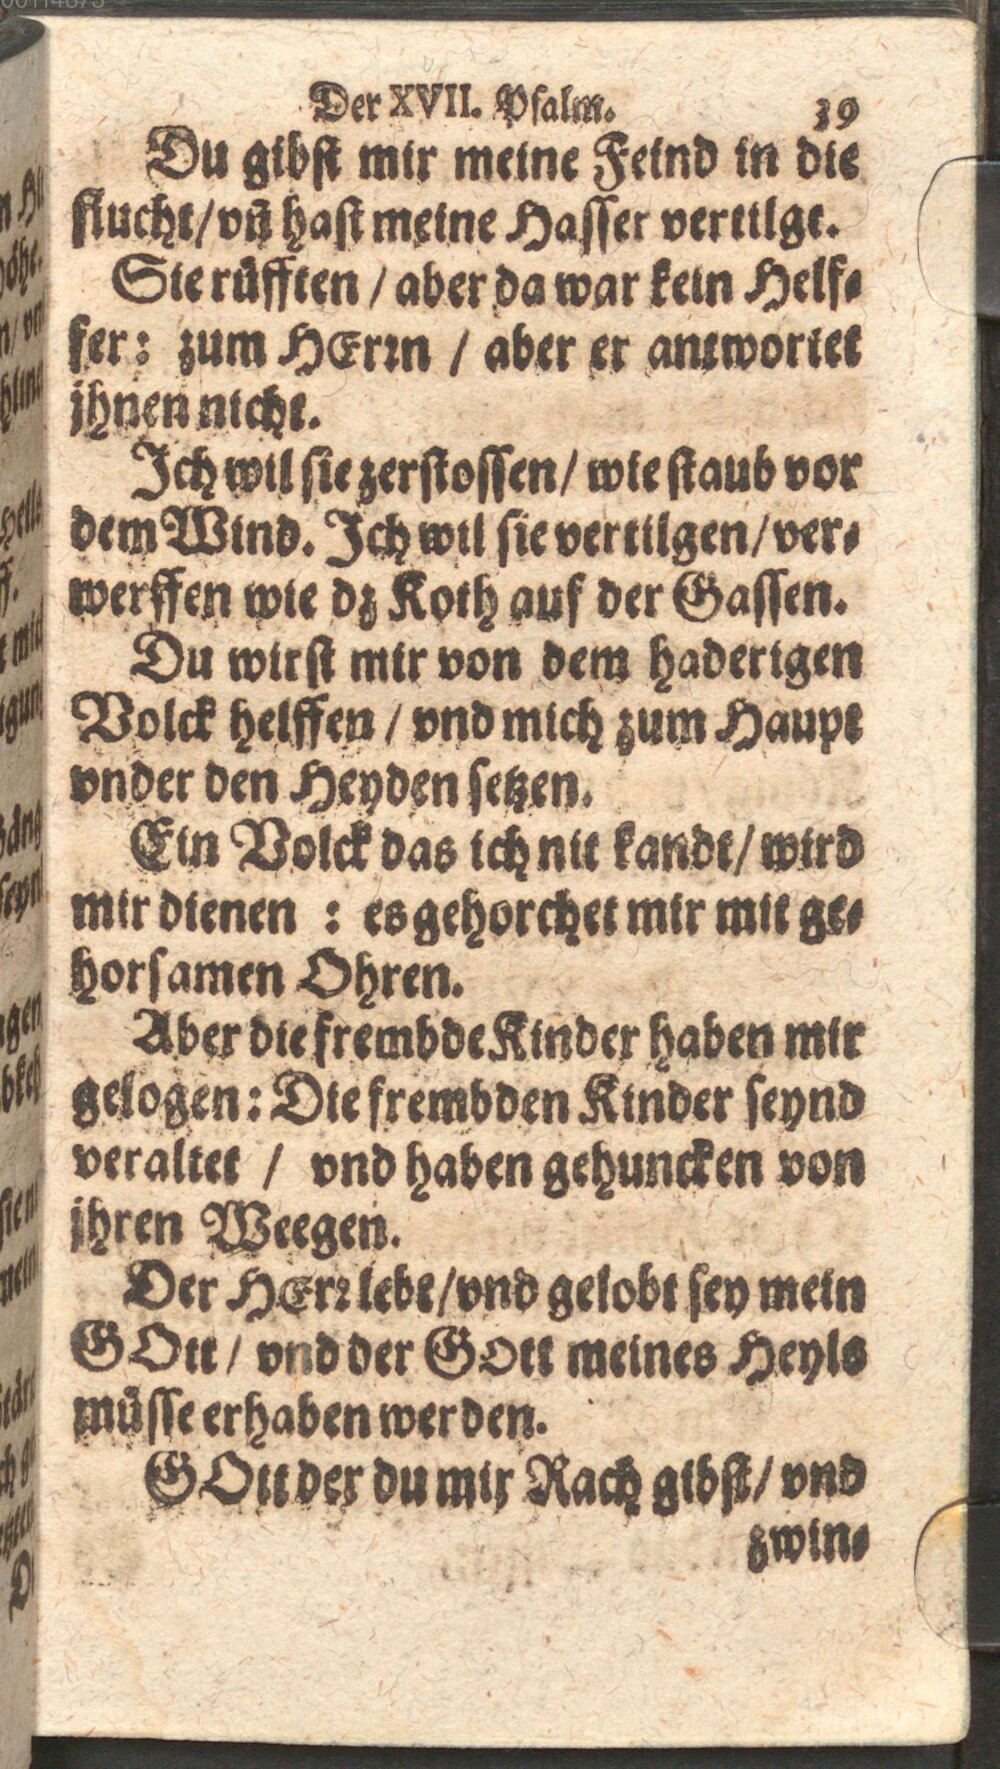 Der XVII. Psalm. 39
Du gibst mir meine Feind in die
flucht/vñ hast meine Hasser vertilgt.
Sie rüfften / aber da war kein Helf-
fer: zum HErrn / aber er antwortet
jhnen nicht.
Ich wil sie zerstossen/ wie staub vor
dem Wind. Ich wil sie vertilgen/ver-
werffen wie dz Koth auf der Gassen.
Du wirst mir von dem haderigen
Volck helffen / vnd mich zum Haupt
vnder den Heyden setzen.
Ein Volck das ich nit kandt/ wird
mir dienen : es gehorchet mir mit ge-
horsamen Ohren.
Aber die frembde Kinder haben mir
gelogen: Die frembden Kinder seynd
veraltet / vnd haben gehuncken von
jhren Weegen.
Der HErr lebt/vnd gelobt sey mein
GOtt/ vnd der GOtt meines Heyls
müsse erhaben werden.
GOtt der du mir Rach gibst/ vnd
zwin-